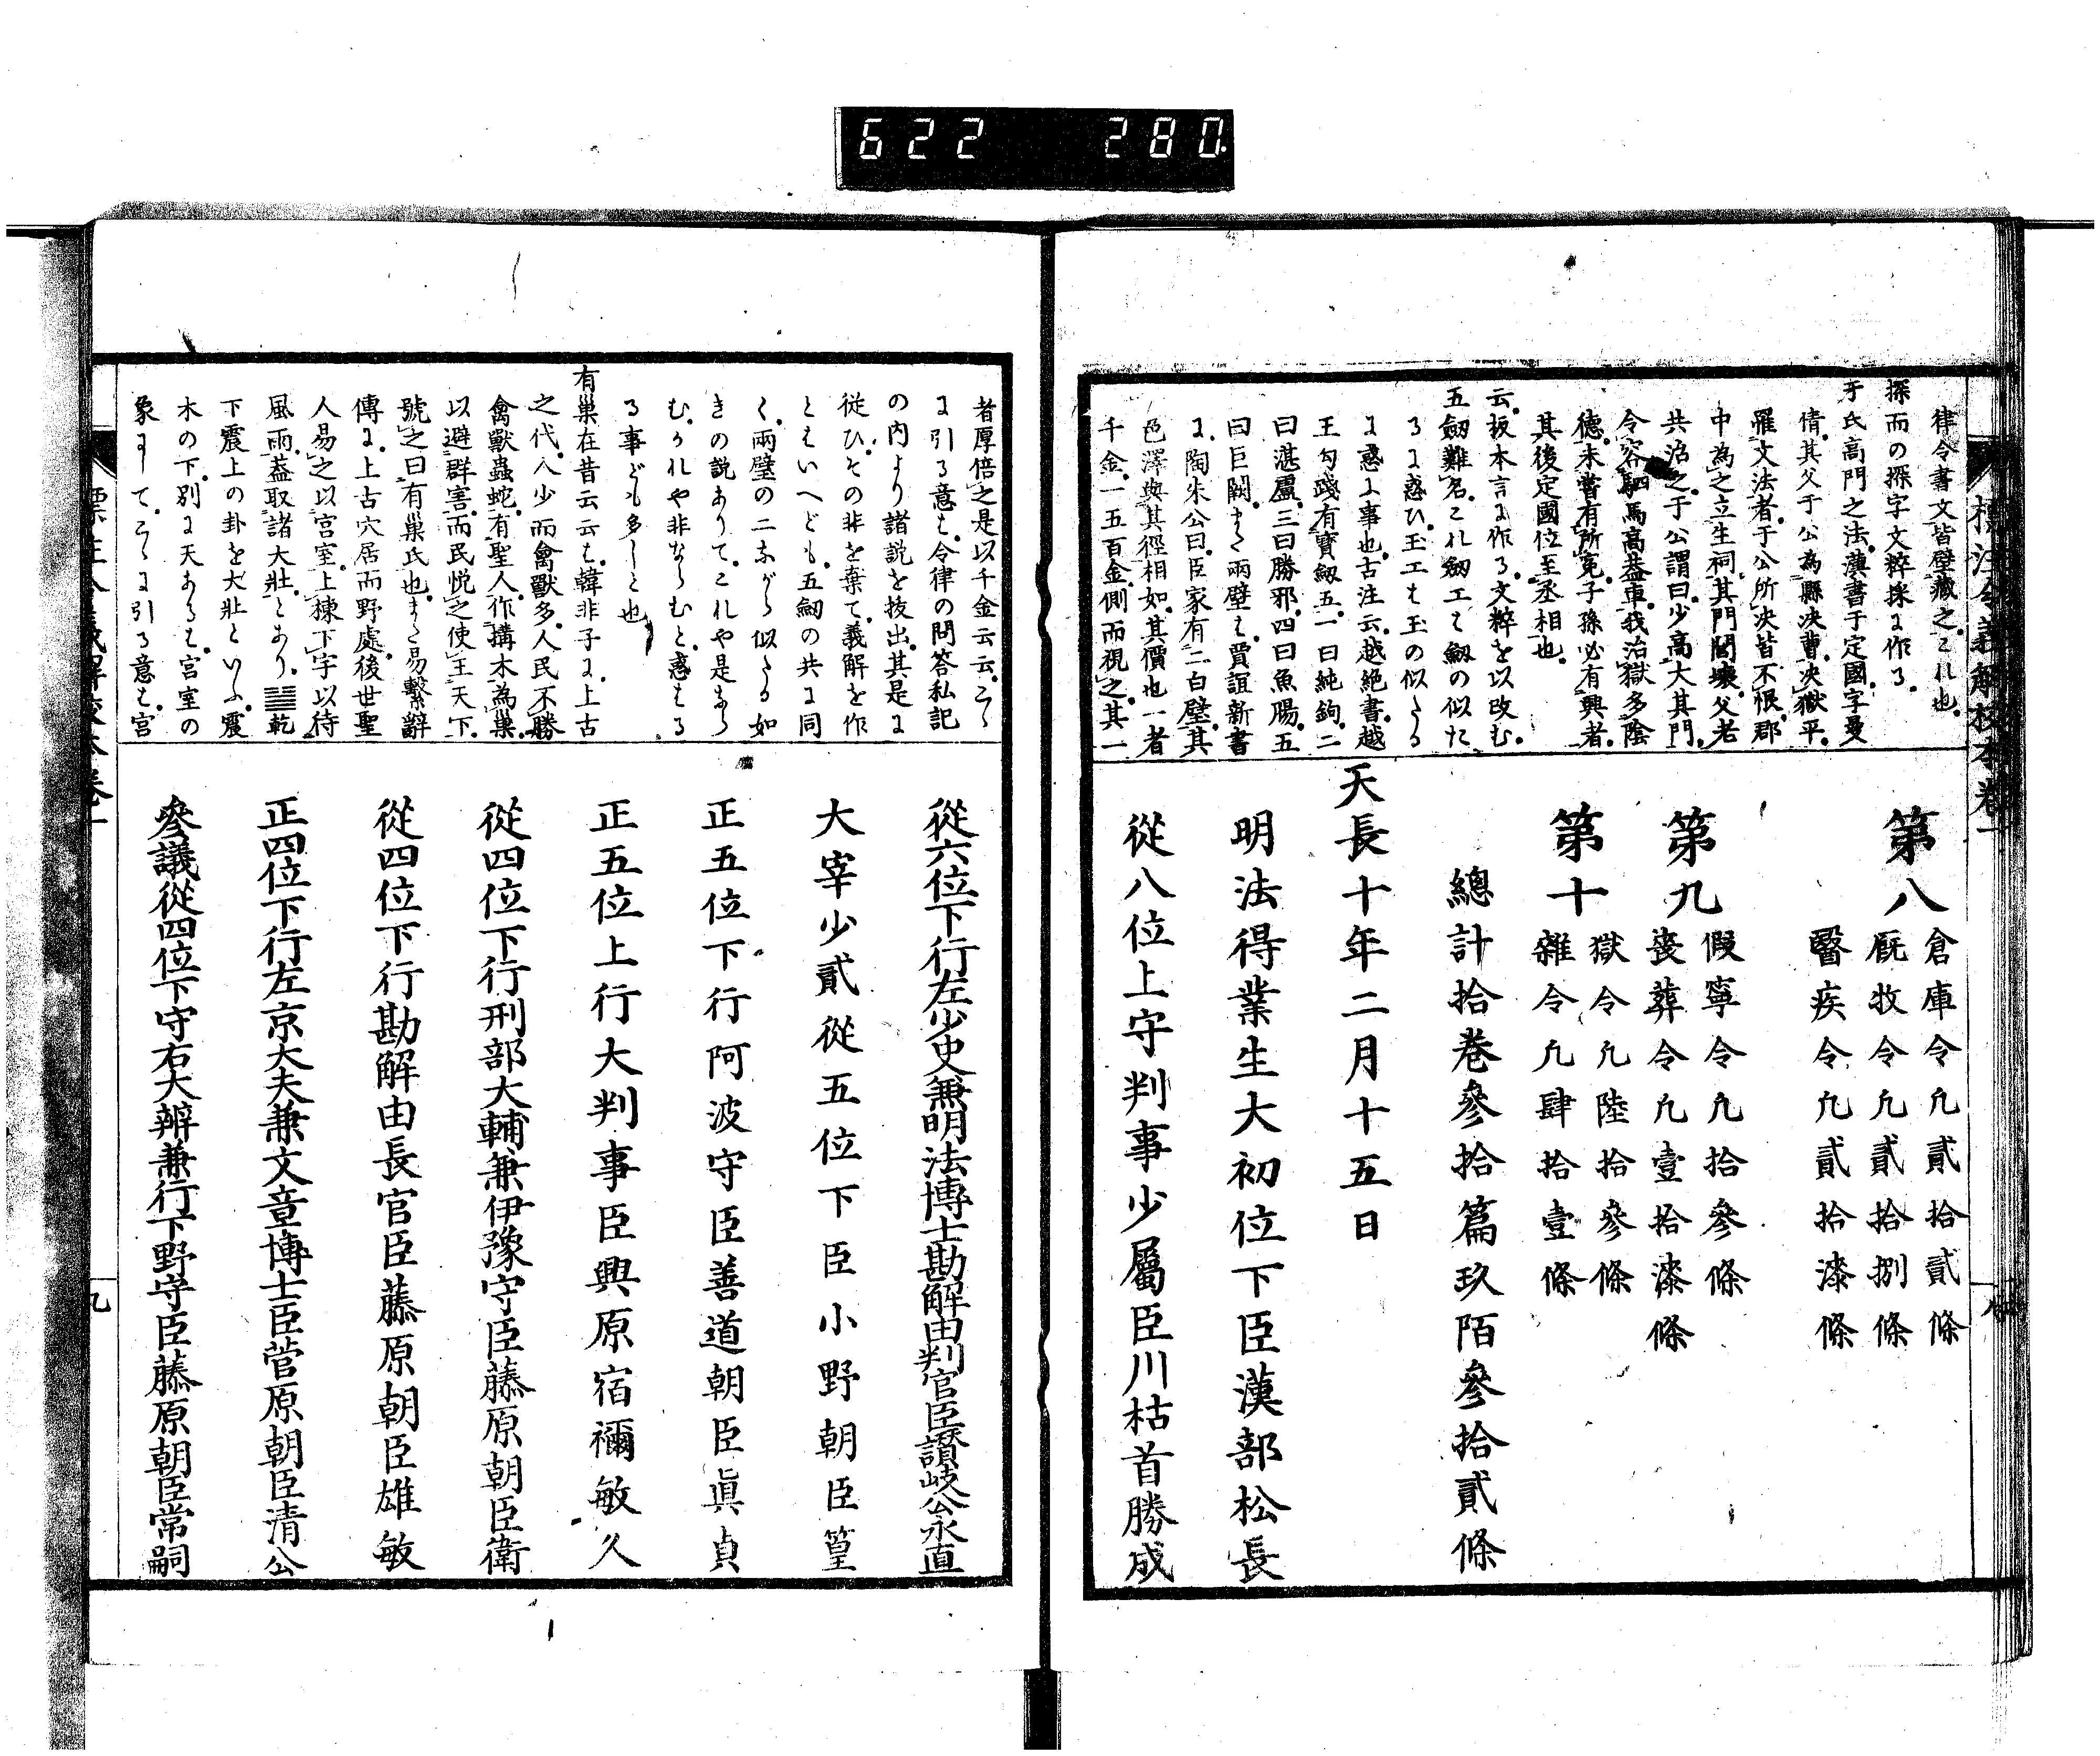 622 280
標注令義解校本卷一
律令書文皆壁藏之これ也
探而の探字文粹採に作る
于氏高門之法漢書于定國字曼
倩其父于公為縣決曹決獄平
羅文法者于公所決皆不恨郡
中為之立生祠其門閭壞父老
共治之于公謂曰少高大其門
令容駟馬高葢車我治獄多陰
德未嘗有所冤子孫必有興者
其後定國位至丞相也
云板本言に作る文粹を以改む
五劔難名これ劔工は劔の似た
るに惑ひ玉工は玉の似たる
に惑ふ事也古注云越絶書越
王勾踐有寶劔五一曰純鉤二
曰湛盧三曰勝邪四曰魚腸五
曰巨闕また兩壁は賈誼新書
に陶朱公曰臣家有二白壁其
色澤與其徑相如其價也一者
千金一五百金側而視之其一
第八
倉庫令凡貳拾貳條
厩牧令凡貳拾捌條
醫疾令凡貳拾漆條
第九
假寧令凡拾參條
喪葬令凡壹拾漆條
第十
獄令凡陸拾參條
雜令凡肆拾壹條
總計拾卷參拾篇玖陌參拾貳條
天長十年二月十五日
明法得業生大初位下臣漢部松長
從八位上守判事少屬臣川枯首勝成
八
者厚倍之是以千金云云こゝ
に引る意は令律の問答私記
の内より諸説を抜出其是に
從ひその非を棄て義解を作
とはいへども五劔の共に同
く兩壁の二ながら似たる如
きの説ありてこれや是なら
むかれや非ならむと惑はる
る事ども多しと也
有巢在昔云云は韓非子に上古
之代人少而禽獸多人民不勝
禽獸蟲蛇有聖人作搆木為巢
以避群害而民悦之使王天下
號之曰有巢氏也また易繫辭
傳に上古穴居而野處後世聖
人易之以宮室上棟下宇以待
風雨葢取諸大壯とあり䷡乾
下震上の卦を大壯といふ震
木の下別に天あるは宮室の
象にしてこゝに引る意は宮
從六位下行左少史兼明法博士勘解由判官臣讚岐公永直
大宰少貳從五位下臣小野朝臣篁
正五位下行阿波守臣善道朝臣眞貞
正五位上行大判事臣興原宿禰敏久
從四位下行刑部大輔兼伊豫守臣藤原朝臣衛
從四位下行勘解由長官臣藤原朝臣雄敏
正四位下行左京大夫兼文章博士臣菅原朝臣清公
參議從四位下守右大辨兼行下野守臣藤原朝臣常嗣
標注令義解校本卷一
九